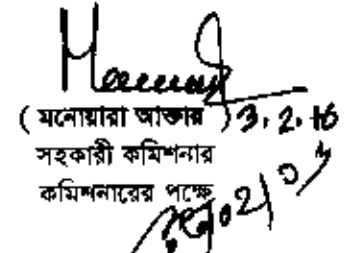 ( মনোয়ারা আক্তার ) 3.2.16
সহকারী কমিশনার
কমিশনারের পক্ষে